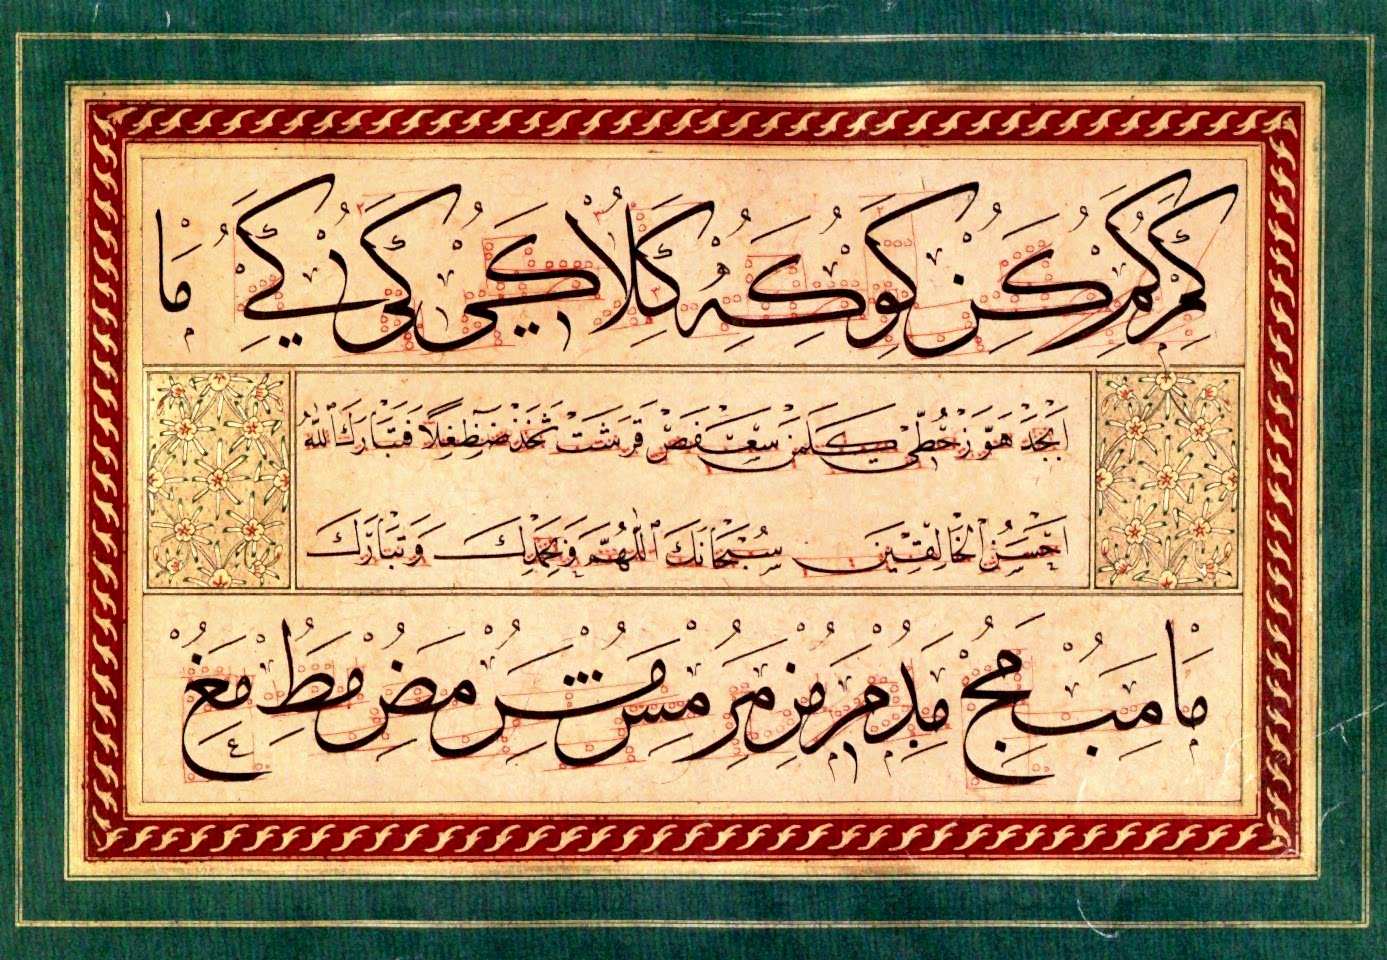 كر كم كن كو كه كلا كي كي كے ما
ابجد هوز حطي كلمن سعفص قرشت ثخذ ضظغلا فتبارك الله
احسن الخالقين سبحانك اللهم وبحمدك وتبارك
ما مب مج مد مر مز مر مس مش مض مط مغ